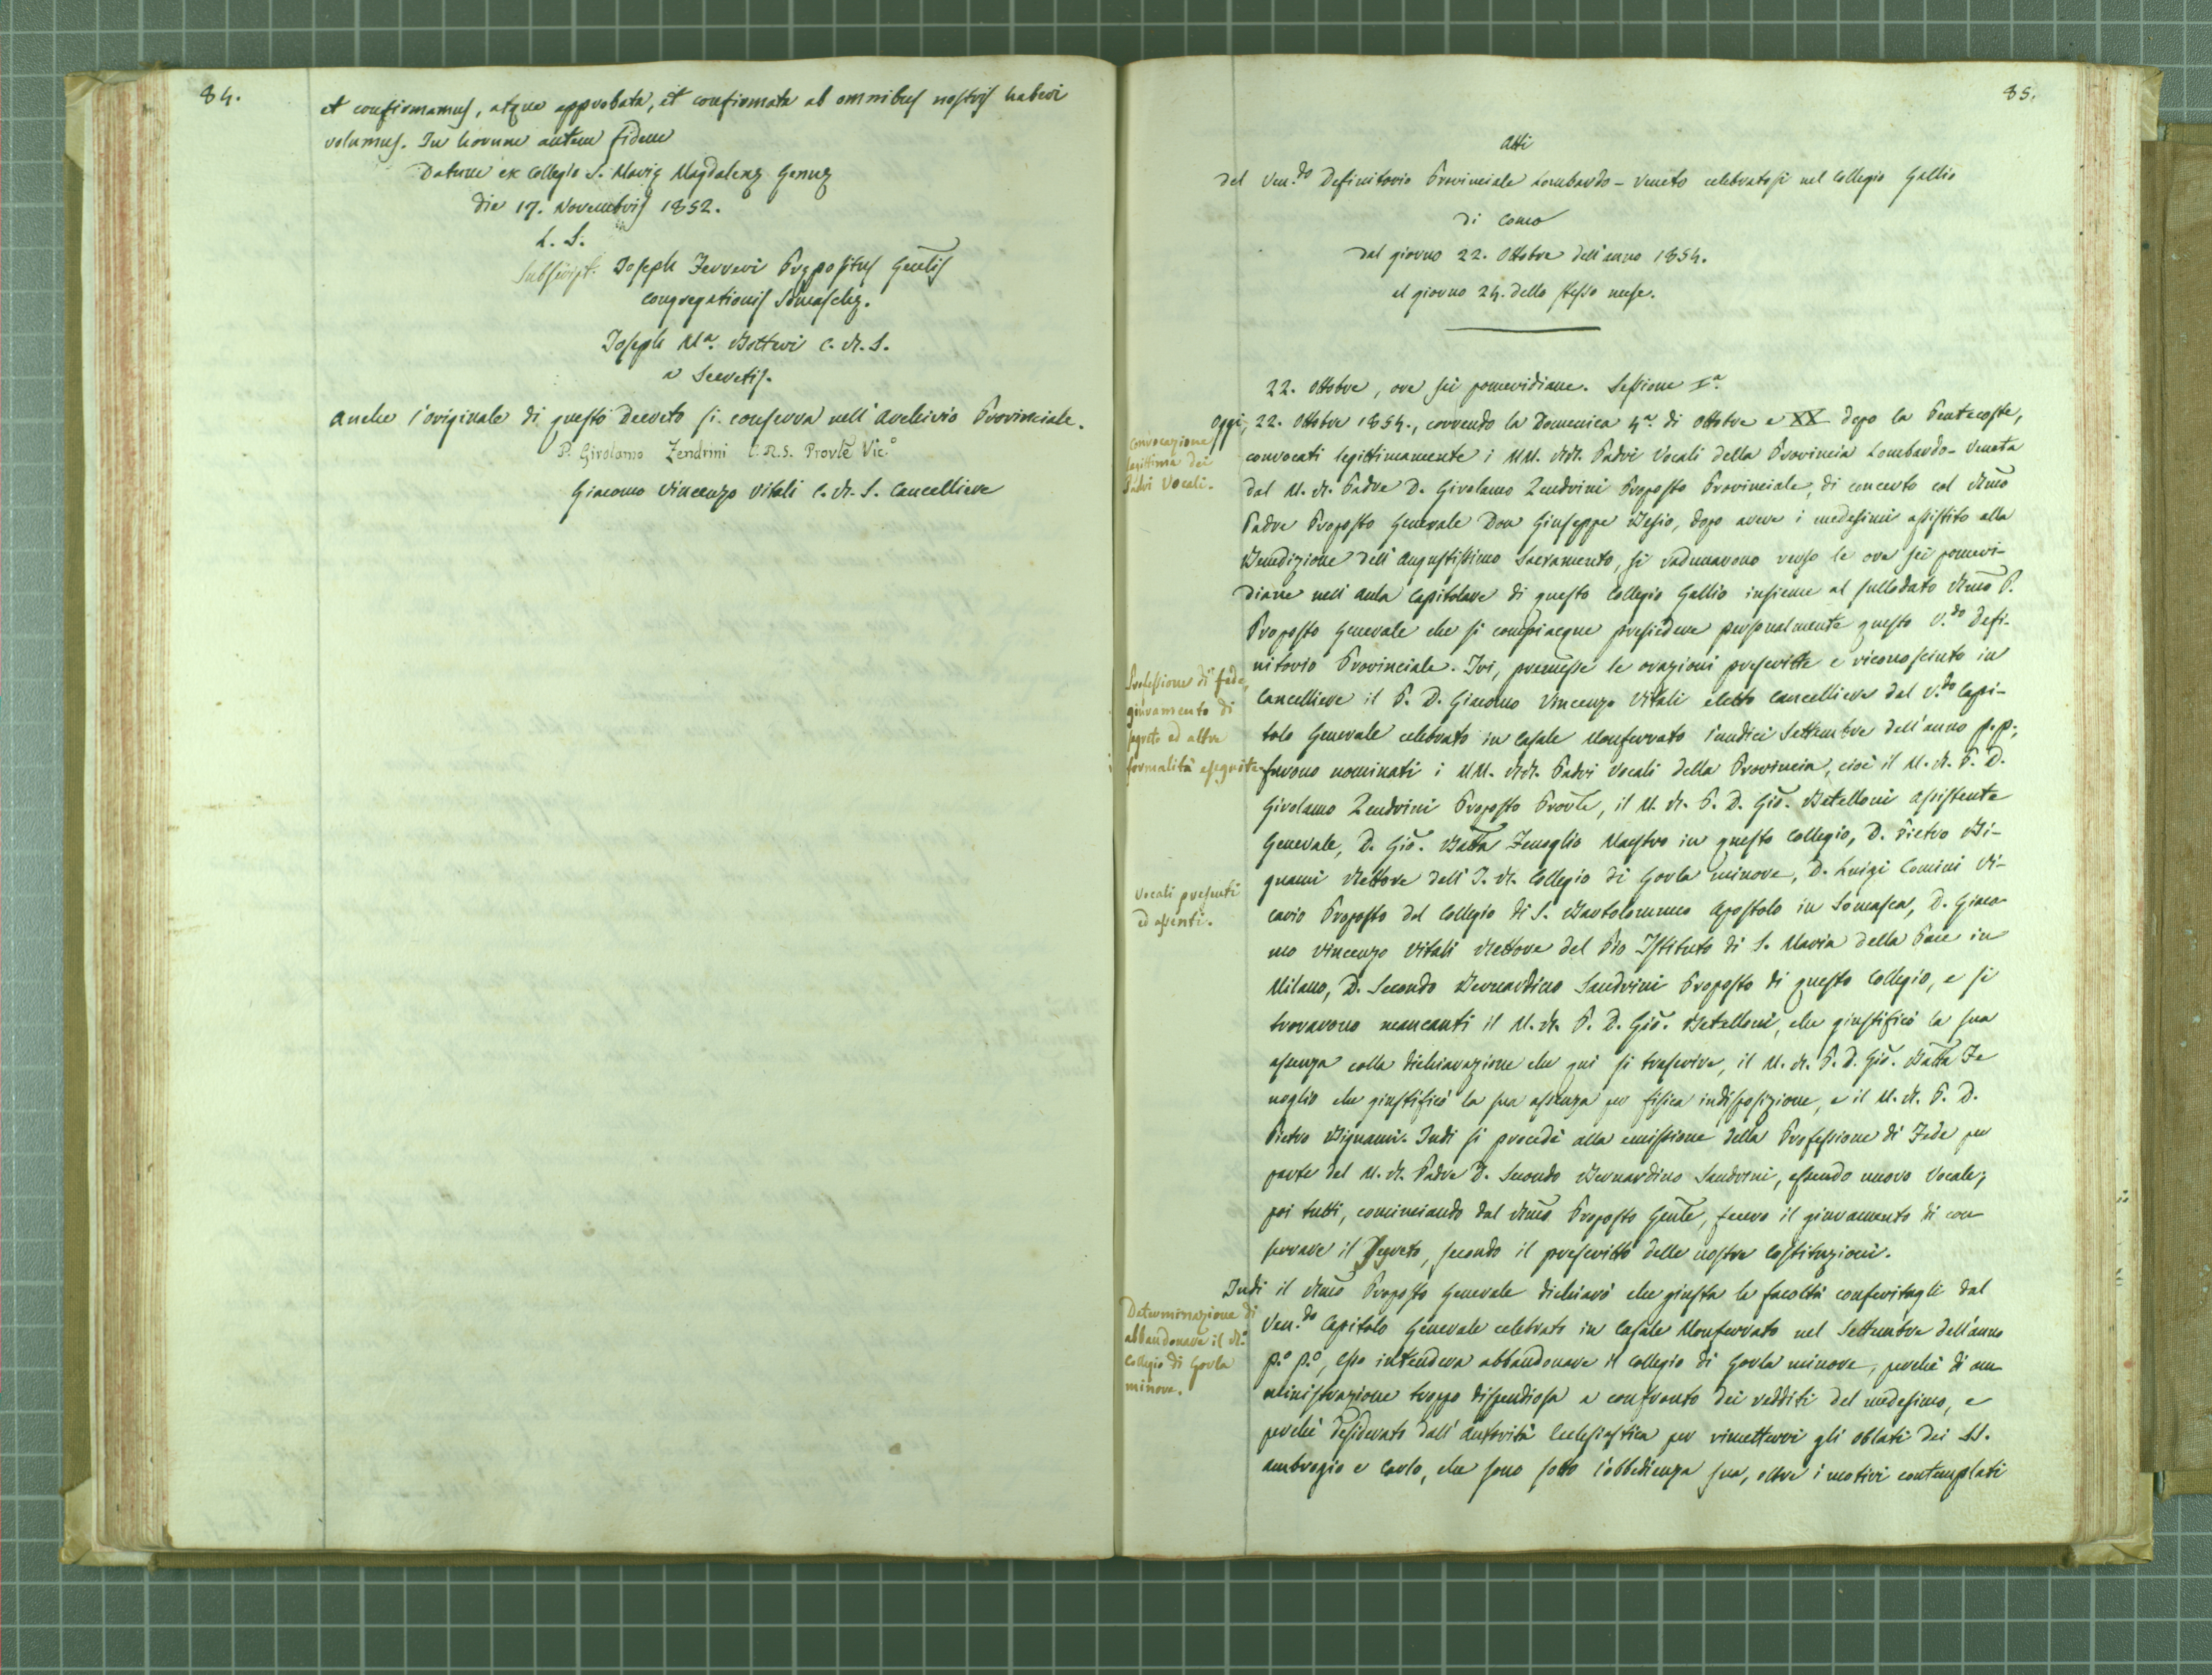 84.
et confirmamus, atque approbata, et confirmata ab omnibus nostris haberi
volumus. In horum autem fidem
Datum ex Collegio S. Marię Magdalenę Genuę
die 17. Novembris 1852.
L. S.
Subscript. Joseph Ferreri Prępositus Gen̄lis
Congregationis Somaschę.
Joseph Mª. Botteri C. R. S.
a Secretis.
Anche l'originale di questo Decreto si conserva nell'Archivio Provinciale.
P. Girolamo Zendrini C.R.S. Provl̃e Vic.º
Giacomo Vincenzo Vitali C. R. S. Cancelliere
85.
Atti
del Ven.do Definitorio Provinciale Lombardo-Veneto celebratosi nel Collegio Gallio
di Como
dal giorno 22. Ottobre dell'anno 1854.
al giorno 24. dello stesso mese.
22. Ottobre, ore sei pomeridiane. Sessione Iª.
Convocazione
legittima dei
Padri Vocali.
Oggi, 22. Ottobre 1854., correndo la Domenica 4ª. di Ottobre e XX dopo la Pentecoste,
convocati legittimamente i MM. RR. Padri Vocali della Provincia Lombardo-Veneta
dal M. R. Padre D. Girolamo Zendrini Preposto Provinciale, di concerto col Rmõ
Padre Preposto Generale Don Giuseppe Besio, dopo avere i medesimi assistito alla
Benedizione dell'Augustissimo Sacramento, si radunarono verso le ore sei pomeri-
diane nell'Aula Capitolare di questo Collegio Gallio insieme al sullodato Rmõ P.
Preposto Generale che si compiacque presiedere personalmente questo V.do Defi-
Professione di fede,
giuramento di
segreto ed altre
formalità eseguite.
nitorio Provinciale. Ivi, premesse le orazioni prescritte e riconosciuto in
Cancelliere il P. D. Giacomo Vincenzo Vitali eletto Cancelliere dal V.do Capi-
tolo Generale celebrato in Casale Monferrato l'undici Settembre dell'anno p.p.,
furono nominati i MM. RR. Padri Vocali della Provincia, cioè il M. R. P. D.
Girolamo Zendrini Preposto Provl̃e, il M. R. P. D. Gio. Betelloni Assistente
Generale, D. Gio. Batta Fenoglio Maestro in questo Collegio, D. Pietro Bi-
Vocali presenti
ed assenti.
gnami Rettore dell'I. R. Collegio di Gorla minore, D. Luigi Comini Vi-
cario Preposto del Collegio di S. Bartolommeo Apostolo in Somasca, D. Giaco-
mo Vincenzo Vitali Rettore del Pio Istituto di S. Maria della Pace in
Milano, D. Secondo Bernardino Sandrini Preposto di questo Collegio, e si
trovarono mancanti il M. R. P. D. Gio. Betelloni, che giustificò la sua
assenza colla dichiarazione che qui si trascrive, il M. R. P. D. Gio. Batta Fe
noglio che giustificò la sua assenza per fisica indisposizione, e il M. R. P. D.
Pietro Bignami. Indi si procedè alla emissione della Professione di Fede per
parte del M. R. Padre D. Secondo Bernardino Sandrini, essendo nuovo Vocale;
poi tutti, cominciando dal Rmõ Preposto Genl̃e, fecero il giuramento di con
servare il Segreto, secondo il prescritto delle nostre Costituzioni.
Determinazione di
abbandonare il R.º
Collegio di Gorla
minore.
Indi il Rmõ Preposto Generale dichiarò che giusta la facoltà conferitagli dal
Ven.do Capitolo Generale celebrato in Casale Monferrato nel Settembre dell'anno
p.º p.º, esso intendeva abbandonare il Collegio di Gorla minore, perchè di am
ministrazione troppo dispendiosa a confronto dei redditi del medesimo, e
perchè desiderato dall'Autorità Ecclesiastica per rimettervi gli Oblati dei SS.
Ambrogio e Carlo, che sono sotto l'obbedienza sua, oltre i motivi contemplati